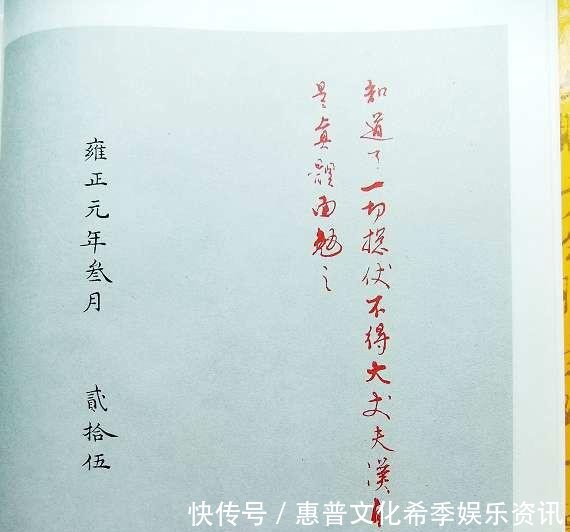 知道了一切摠伏不得大丈夫漢
是真體面勉之
雍正元年叁月 貳拾伍
快传号/惠普文化希季娱乐资讯